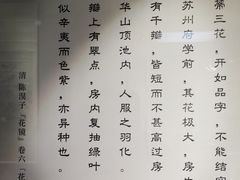 第三花，开如品字，不能结实
苏州府学前，其花极大，房内
有千瓣，皆短而不甚高过房
华山顶池内，人服之羽化。
瓣上有翠点，房内复抽绿叶
似辛夷而色紫，亦异种也。
清 陈淏子『花镜』卷六『花